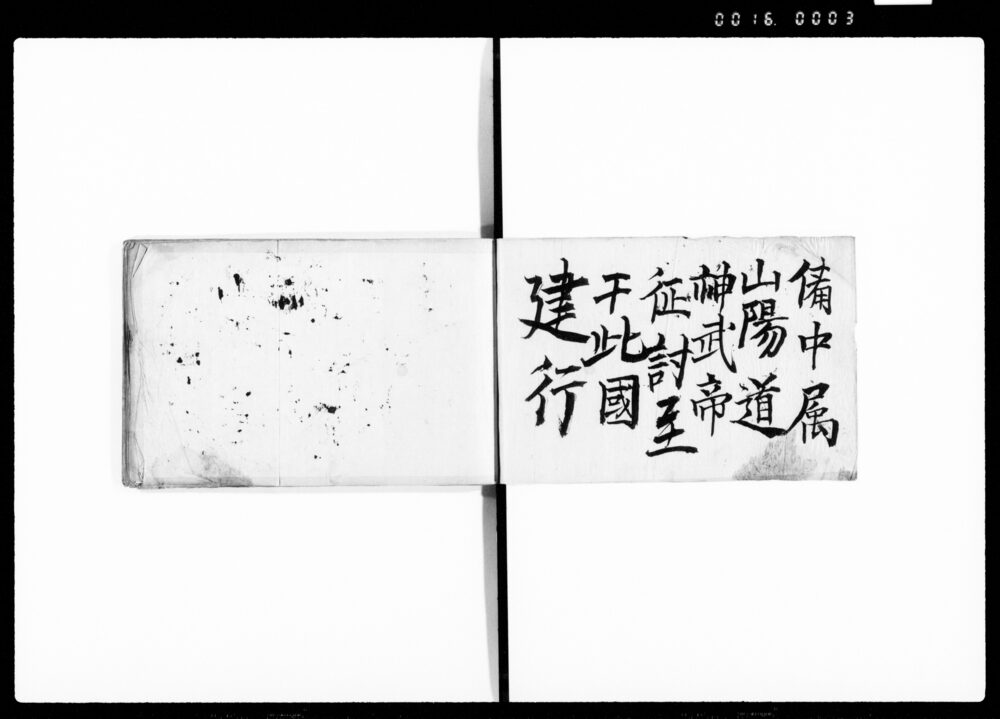 0016.0003
備中属
山陽道
神武帝
征討至
于此國
建行